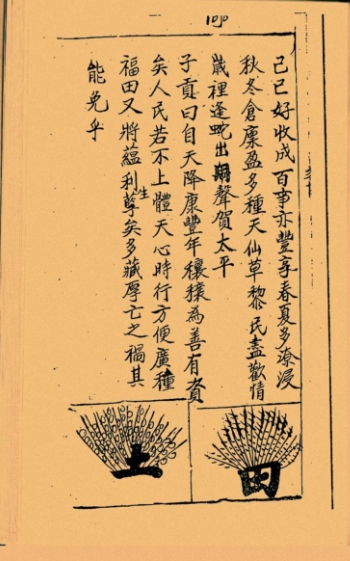 1090
己巳好收成百事亦豐享春夏多潦浸
秋冬倉廩盈多種天仙草黎民盡歡情
歲裡逢蛇出開聲賀太平
子貢曰自天降康豐年穰穰為善有資
矣人民若不上體天心時行方便廣種
福田又將蘊利生孽矣多藏厚亡之禍其
能免乎
田
土